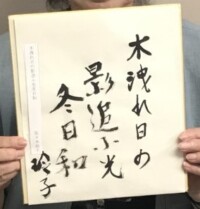 木洩れ日の
影追ふ光
冬日和
玲子